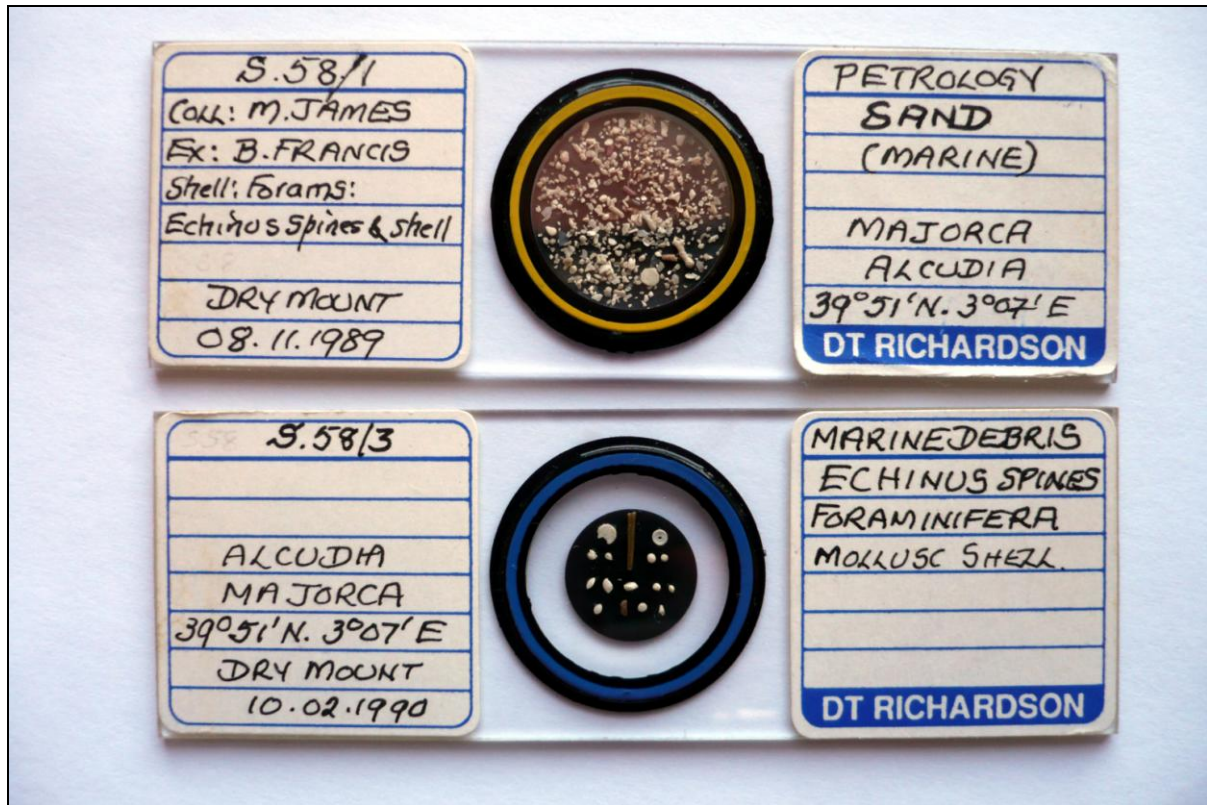 S.58/1
Coll: M.JAMES
Ex: B.FRANCIS
Shell: Forams:
Echinus Spines & shell
DRY MOUNT
08.11.1989
PETROLOGY
SAND
(MARINE)
MAJORCA
ALCUDIA
39°51'N. 3°07'E
DT RICHARDSON
S.58/3
ALCUDIA
MAJORCA
39°51'N. 3°07'E
DRY MOUNT
10.02.1990
MARINE DEBRIS
ECHINUS SPINES
FORAMINIFERA
MOLLUSC SHELL.
DT RICHARDSON